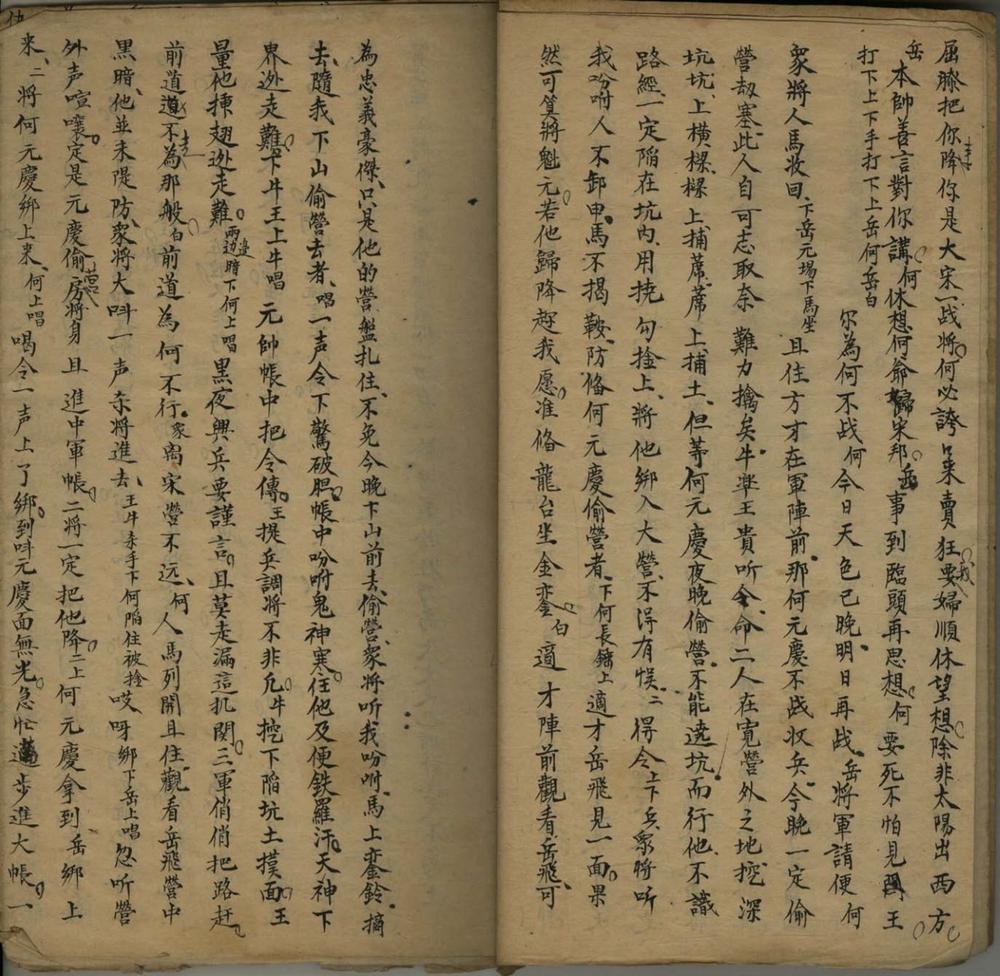 屈膝把你降你是大宋一战將何必誇口來賣狂要我婦順休望想除非太陽出西方
岳本帥善言對你講何休想何爺歸宋邦岳事到臨頭再思想何要死不怕見閻王
打下上下手打下上岳何岳白
尔為何不战何今日天色已晚明日再战岳將軍請便何
衆將人馬收回下岳元場下馬坐且住方才在軍陣前那何元慶不战収兵今晚一定偷
營刼塞此人自可志取奈難力擒矣牛臯王貴听令命二人在寬營外之地挖深
坑坑上橫樑樑上捕蓆蓆上捕土但等何元慶夜晚偷營不能遶坑而行他不識
路經一定陷在坑內用撓勾捡上將他綁入大營不得有悞二得令下兵衆將听
我吩咐人不卸甲馬不揭鞍防俻何元慶偷營者下何長鎚上適才岳飛見一面果
然可算將魁元若他歸降趂我愿准俻龍台坐金鑾白適才陣前觀看岳飛可
為忠義豪傑只是他的營盤扎住不免今晚下山前去偷營衆將听我吩咐馬上鑾鈴摘
去隨我下山偷營去者唱一声令下驚破胆帳中吩咐鬼神寒任他及便鉄羅汗天神下
界迯走難下牛王上牛唱元帥帳中把令傳王提兵調將不非凢牛挖下陷坑土摸面王
量他揷翅迯走難兩边暗下何上唱黑夜興兵要謹言且莫走漏這机関三軍俏俏把路赶
前道道不為那般白前道為何不行衆离宋營不远何人馬列開且住觀看岳飛營中
黑暗他並未隄防衆將大呌一声杀將進去王牛杀手下何陷住被捡哎呀綁下岳上唱忽听營
外声喧嚷定是元慶偷營房將身且進中軍帳二將一定把他降二上何元慶拿到岳綁上
來二將何元慶綁上來何上唱喝令一声上了綁到呌元慶面無光急忙邁步進大帳一